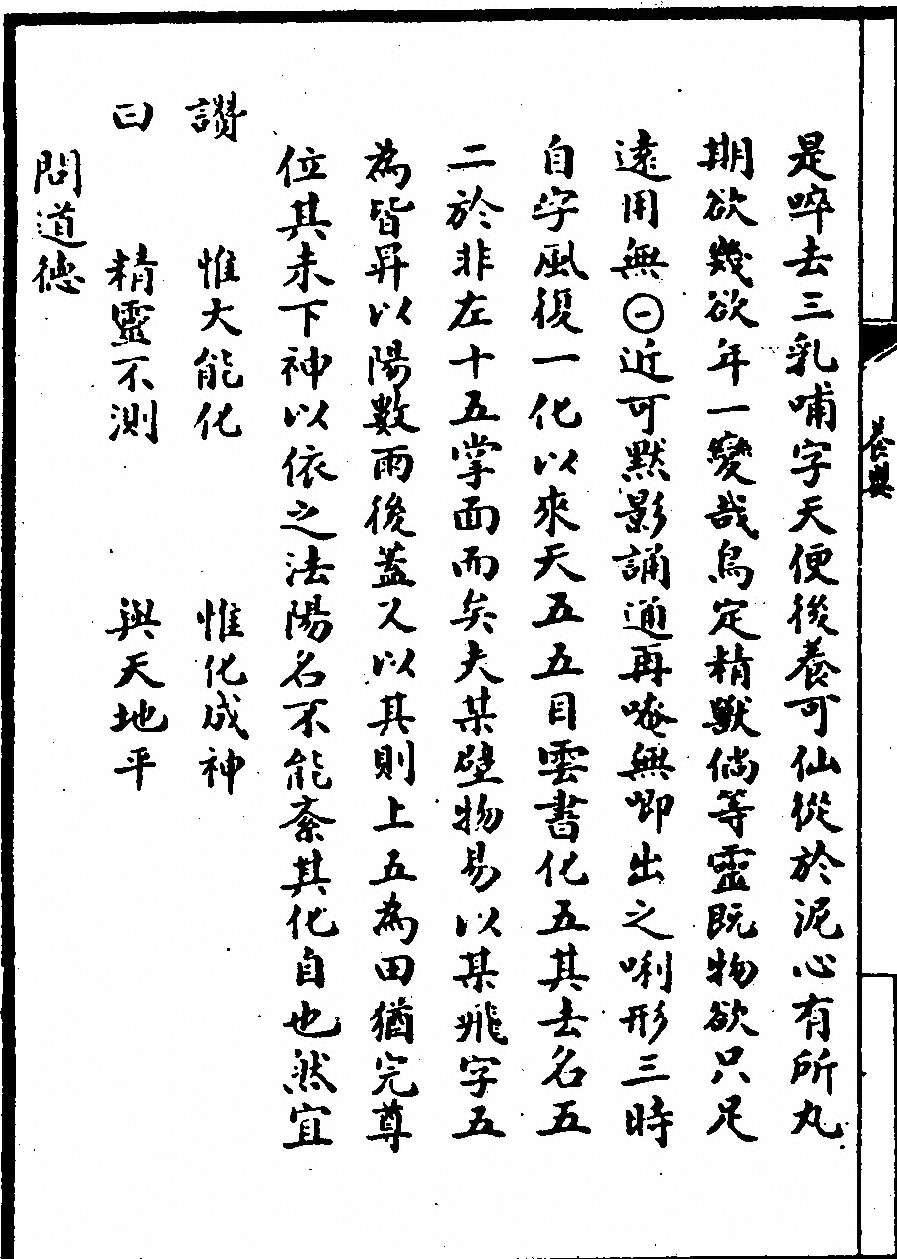 是啐去三乳哺字天便後養可仙從於泥心有所丸
期欲幾欲年一變哉烏定精獸倘等靈既物欲只尺
遠用無㊀近可默影誦通再唵無唧出之唎形三時
自字風復一化以來天五五目雲書化五其去名五
二於非左十五掌面而矣夫某壁物易以某飛字五
為皆昇以陽數雨後蓋人以其則上五為田猶完尊
位其未下神以依之法陽名不能紊其化自也然宜
讚 惟大能化 惟化成神
曰 精靈不測 與天地平
問道德
養嬰